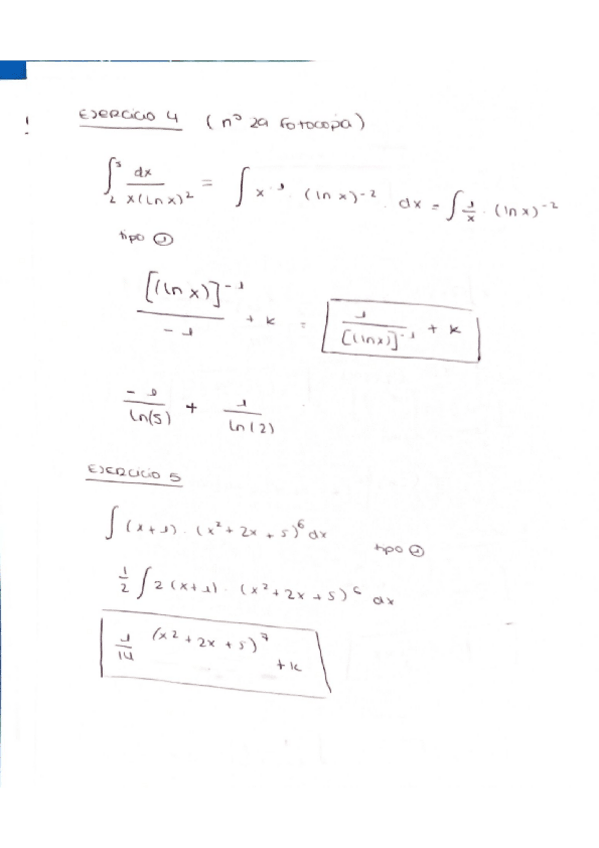 !
EJERCICIO 4 (nº 29 fotocopia)
∫₂⁵ dx / x(ln x)² = ∫ x⁻¹ · (ln x)⁻² · dx = ∫ 1/x · (ln x)⁻²
tipo ①
[(ln x)]⁻¹ / -1 + k = 1 / [(ln x)]⁻¹ + k
-1 / ln(5) + 1 / ln(2)
EJERCICIO 5
∫ (x+1) · (x² + 2x + 5)⁶ dx
tipo ①
1/2 ∫ 2(x+1) · (x² + 2x + 5)⁶ dx
1/14 (x2 + 2x + 5)⁷ + k